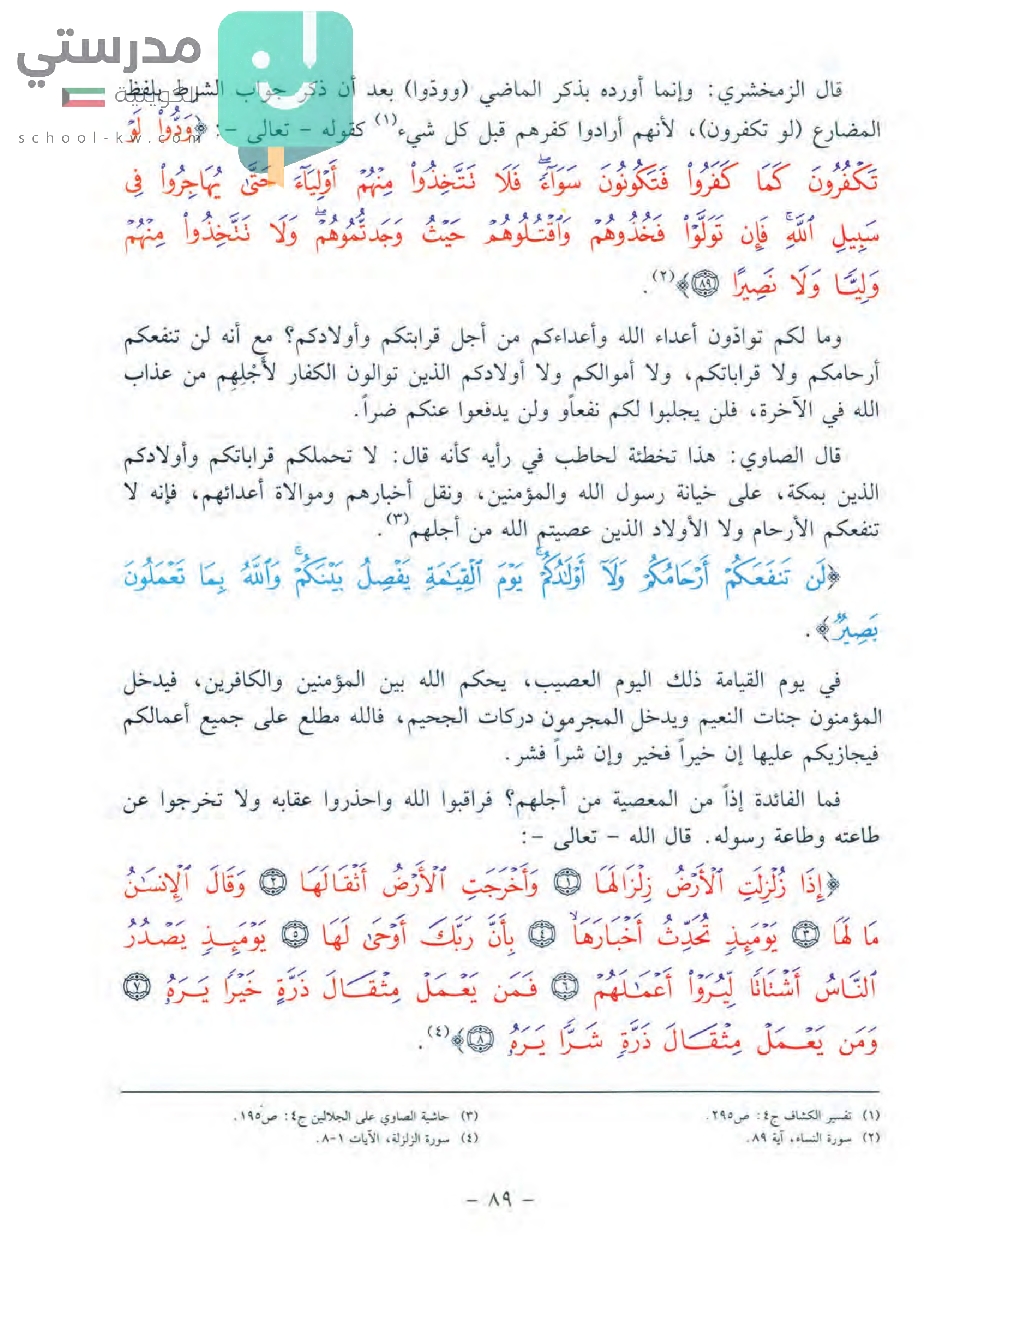 مدرستي
الكويتية
school-kw.com
قال الزمخشري: وإنما أورده بذكر الماضي (وودّوا) بعد أن ذكر جواب الشرط بلفظ
المضارع (لو تكفرون)، لأنهم أرادوا كفرهم قبل كل شيء(١) كقوله - تعالى -: ﴿وَدُّوا۟ لَوْ
تَكْفُرُونَ كَمَا كَفَرُوا۟ فَتَكُونُونَ سَوَآءً ۖ فَلَا تَتَّخِذُوا۟ مِنْهُمْ أَوْلِيَآءَ حَتَّىٰ يُهَاجِرُوا۟ فِى
سَبِيلِ ٱللَّهِ ۚ فَإِن تَوَلَّوْا۟ فَخُذُوهُمْ وَٱقْتُلُوهُمْ حَيْثُ وَجَدتُّمُوهُمْ ۖ وَلَا تَتَّخِذُوا۟ مِنْهُمْ
وَلِيًّا وَلَا نَصِيرًا ٨٩﴾(٢).
وما لكم توادّون أعداء الله وأعداءكم من أجل قرابتكم وأولادكم؟ مع أنه لن تنفعكم
أرحامكم ولا قراباتكم، ولا أموالكم ولا أولادكم الذين توالون الكفار لأجْلِهِم من عذاب
الله في الآخرة، فلن يجلبوا لكم نفعاًو ولن يدفعوا عنكم ضراً.
قال الصاوي: هذا تخطئة لحاطب في رأيه كأنه قال: لا تحملكم قراباتكم وأولادكم
الذين بمكة، على خيانة رسول الله والمؤمنين، ونقل أخبارهم وموالاة أعدائهم، فإنه لا
تنفعكم الأرحام ولا الأولاد الذين عصيتم الله من أجلهم(٣).
﴿لَن تَنفَعَكُمْ أَرْحَامُكُمْ وَلَآ أَوْلَٰدُكُمْ ۚ يَوْمَ ٱلْقِيَٰمَةِ يَفْصِلُ بَيْنَكُمْ ۚ وَٱللَّهُ بِمَا تَعْمَلُونَ
بَصِيرٌ﴾.
في يوم القيامة ذلك اليوم العصيب، يحكم الله بين المؤمنين والكافرين، فيدخل
المؤمنون جنات النعيم ويدخل المجرمون دركات الجحيم، فالله مطلع على جميع أعمالكم
فيجازيكم عليها إن خيراً فخير وإن شراً فشر.
فما الفائدة إذاً من المعصية من أجلهم؟ فراقبوا الله واحذروا عقابه ولا تخرجوا عن
طاعته وطاعة رسوله. قال الله - تعالى -:
﴿إِذَا زُلْزِلَتِ ٱلْأَرْضُ زِلْزَالَهَا ١ وَأَخْرَجَتِ ٱلْأَرْضُ أَثْقَالَهَا ٢ وَقَالَ ٱلْإِنسَٰنُ
مَا لَهَا ٣ يَوْمَئِذٍ تُحَدِّثُ أَخْبَارَهَا ٤ بِأَنَّ رَبَّكَ أَوْحَىٰ لَهَا ٥ يَوْمَئِذٍ يَصْدُرُ
ٱلنَّاسُ أَشْتَاتًا لِّيُرَوْا۟ أَعْمَٰلَهُمْ ٦ فَمَن يَعْمَلْ مِثْقَالَ ذَرَّةٍ خَيْرًا يَرَهُۥ ٧
وَمَن يَعْمَلْ مِثْقَالَ ذَرَّةٍ شَرًّا يَرَهُۥ ٨﴾(٤).
(١) تفسير الكشاف ج٤: ص٢٩٥.
(٢) سورة النساء، آية ٨٩.
(٣) حاشية الصاوي على الجلالين ج٤: ص١٩٥.
(٤) سورة الزلزلة، الآيات ١-٨.
- ٨٩ -